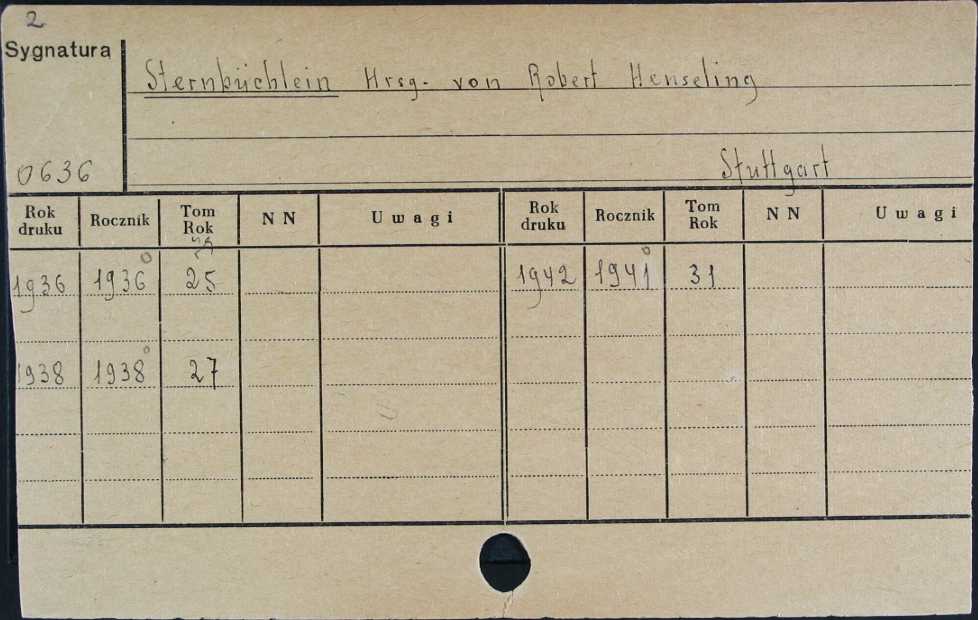 2
Sygnatura
Sternbüchlein Hrsg. von Robert Henseling
0636
Stuttgart
Rok druku Rocznik Tom Rok NN Uwagi Rok druku Rocznik Tom Rok NN Uwagi
1936 1936° 25 1942 1941° 31
1938 1938° 27